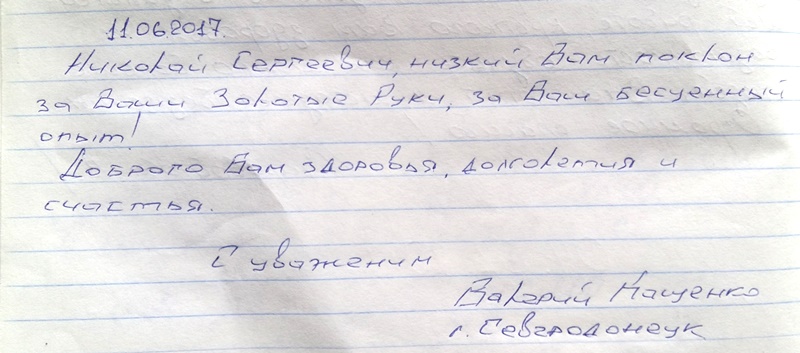 11.06.2017.
Николай Сергеевич, низкий Вам поклон
за Ваши Золотые Руки, за Ваш бесценный
опыт!
Доброго Вам здоровья, долголетия и
счастья.
С уважением
Валерий Кащенко
г. Северодонецк